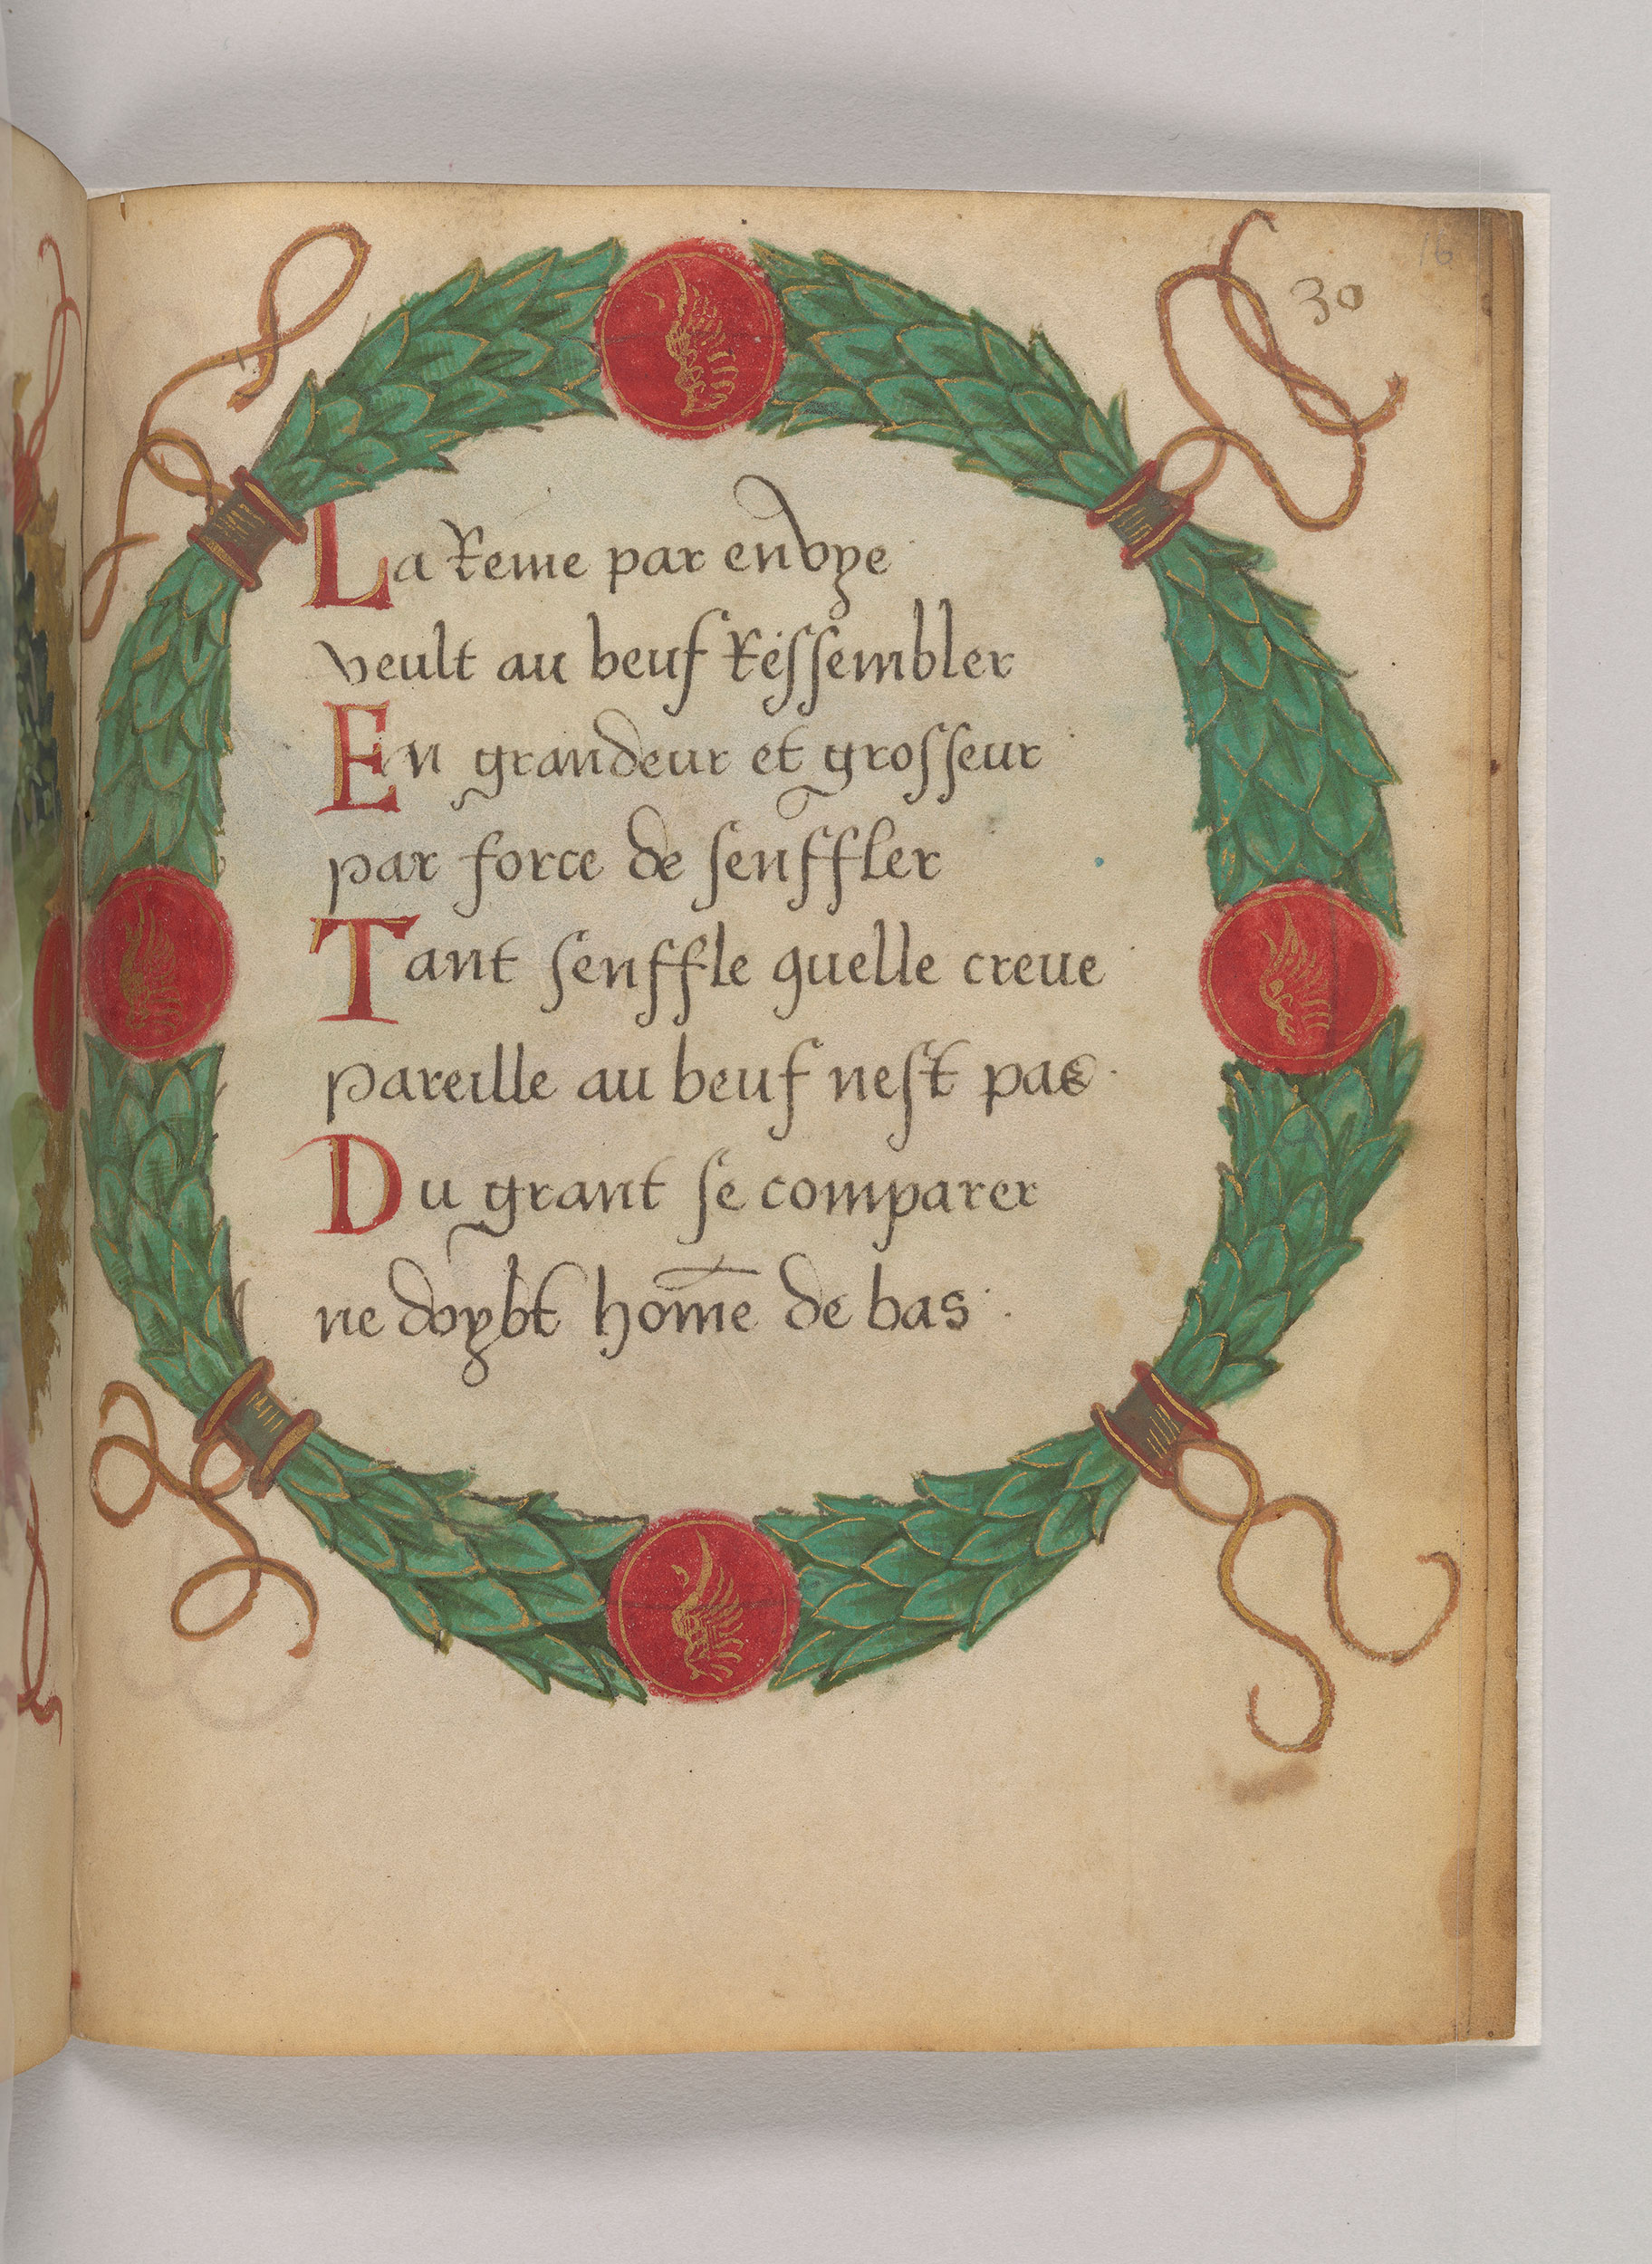 30
16
La Reine par envye
veult au beuf Ressembler
En grandeur et grosseur
par force de senffler
Tant senffle quelle creue
pareille au beuf nest pas
Du grant se comparer
ne doybt hom̄e de bas